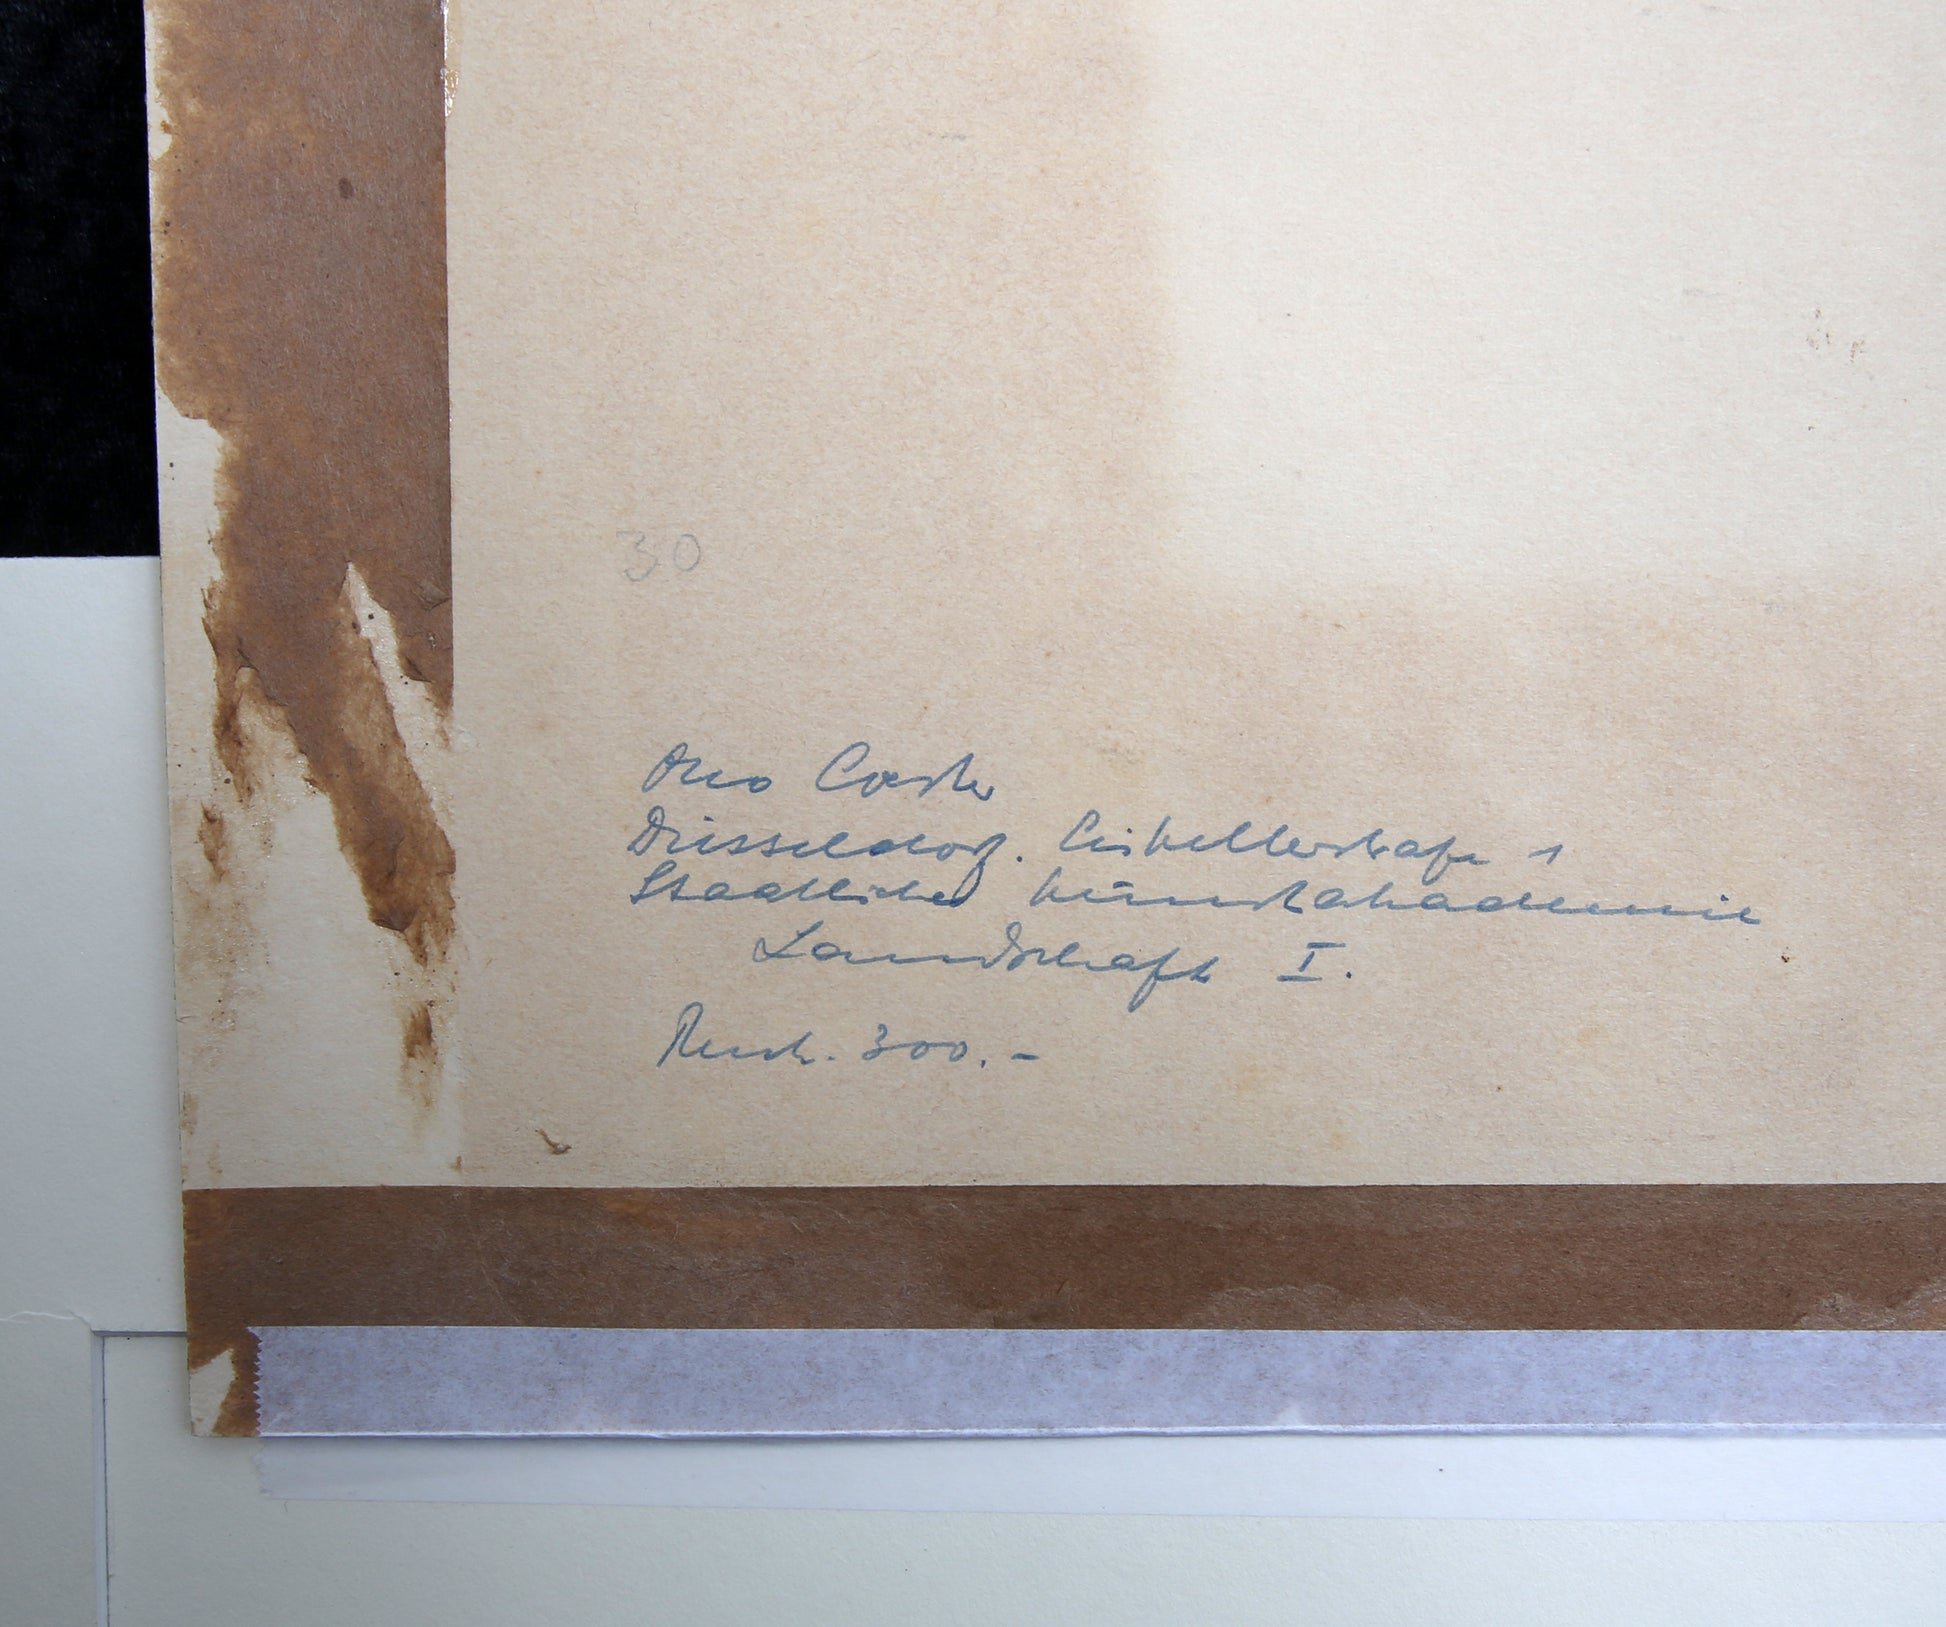 30
Otto Coester
Düsseldorf. Eiskellerstraße 1
Staatliche Kunstakademie
Landschaft I.
300.-